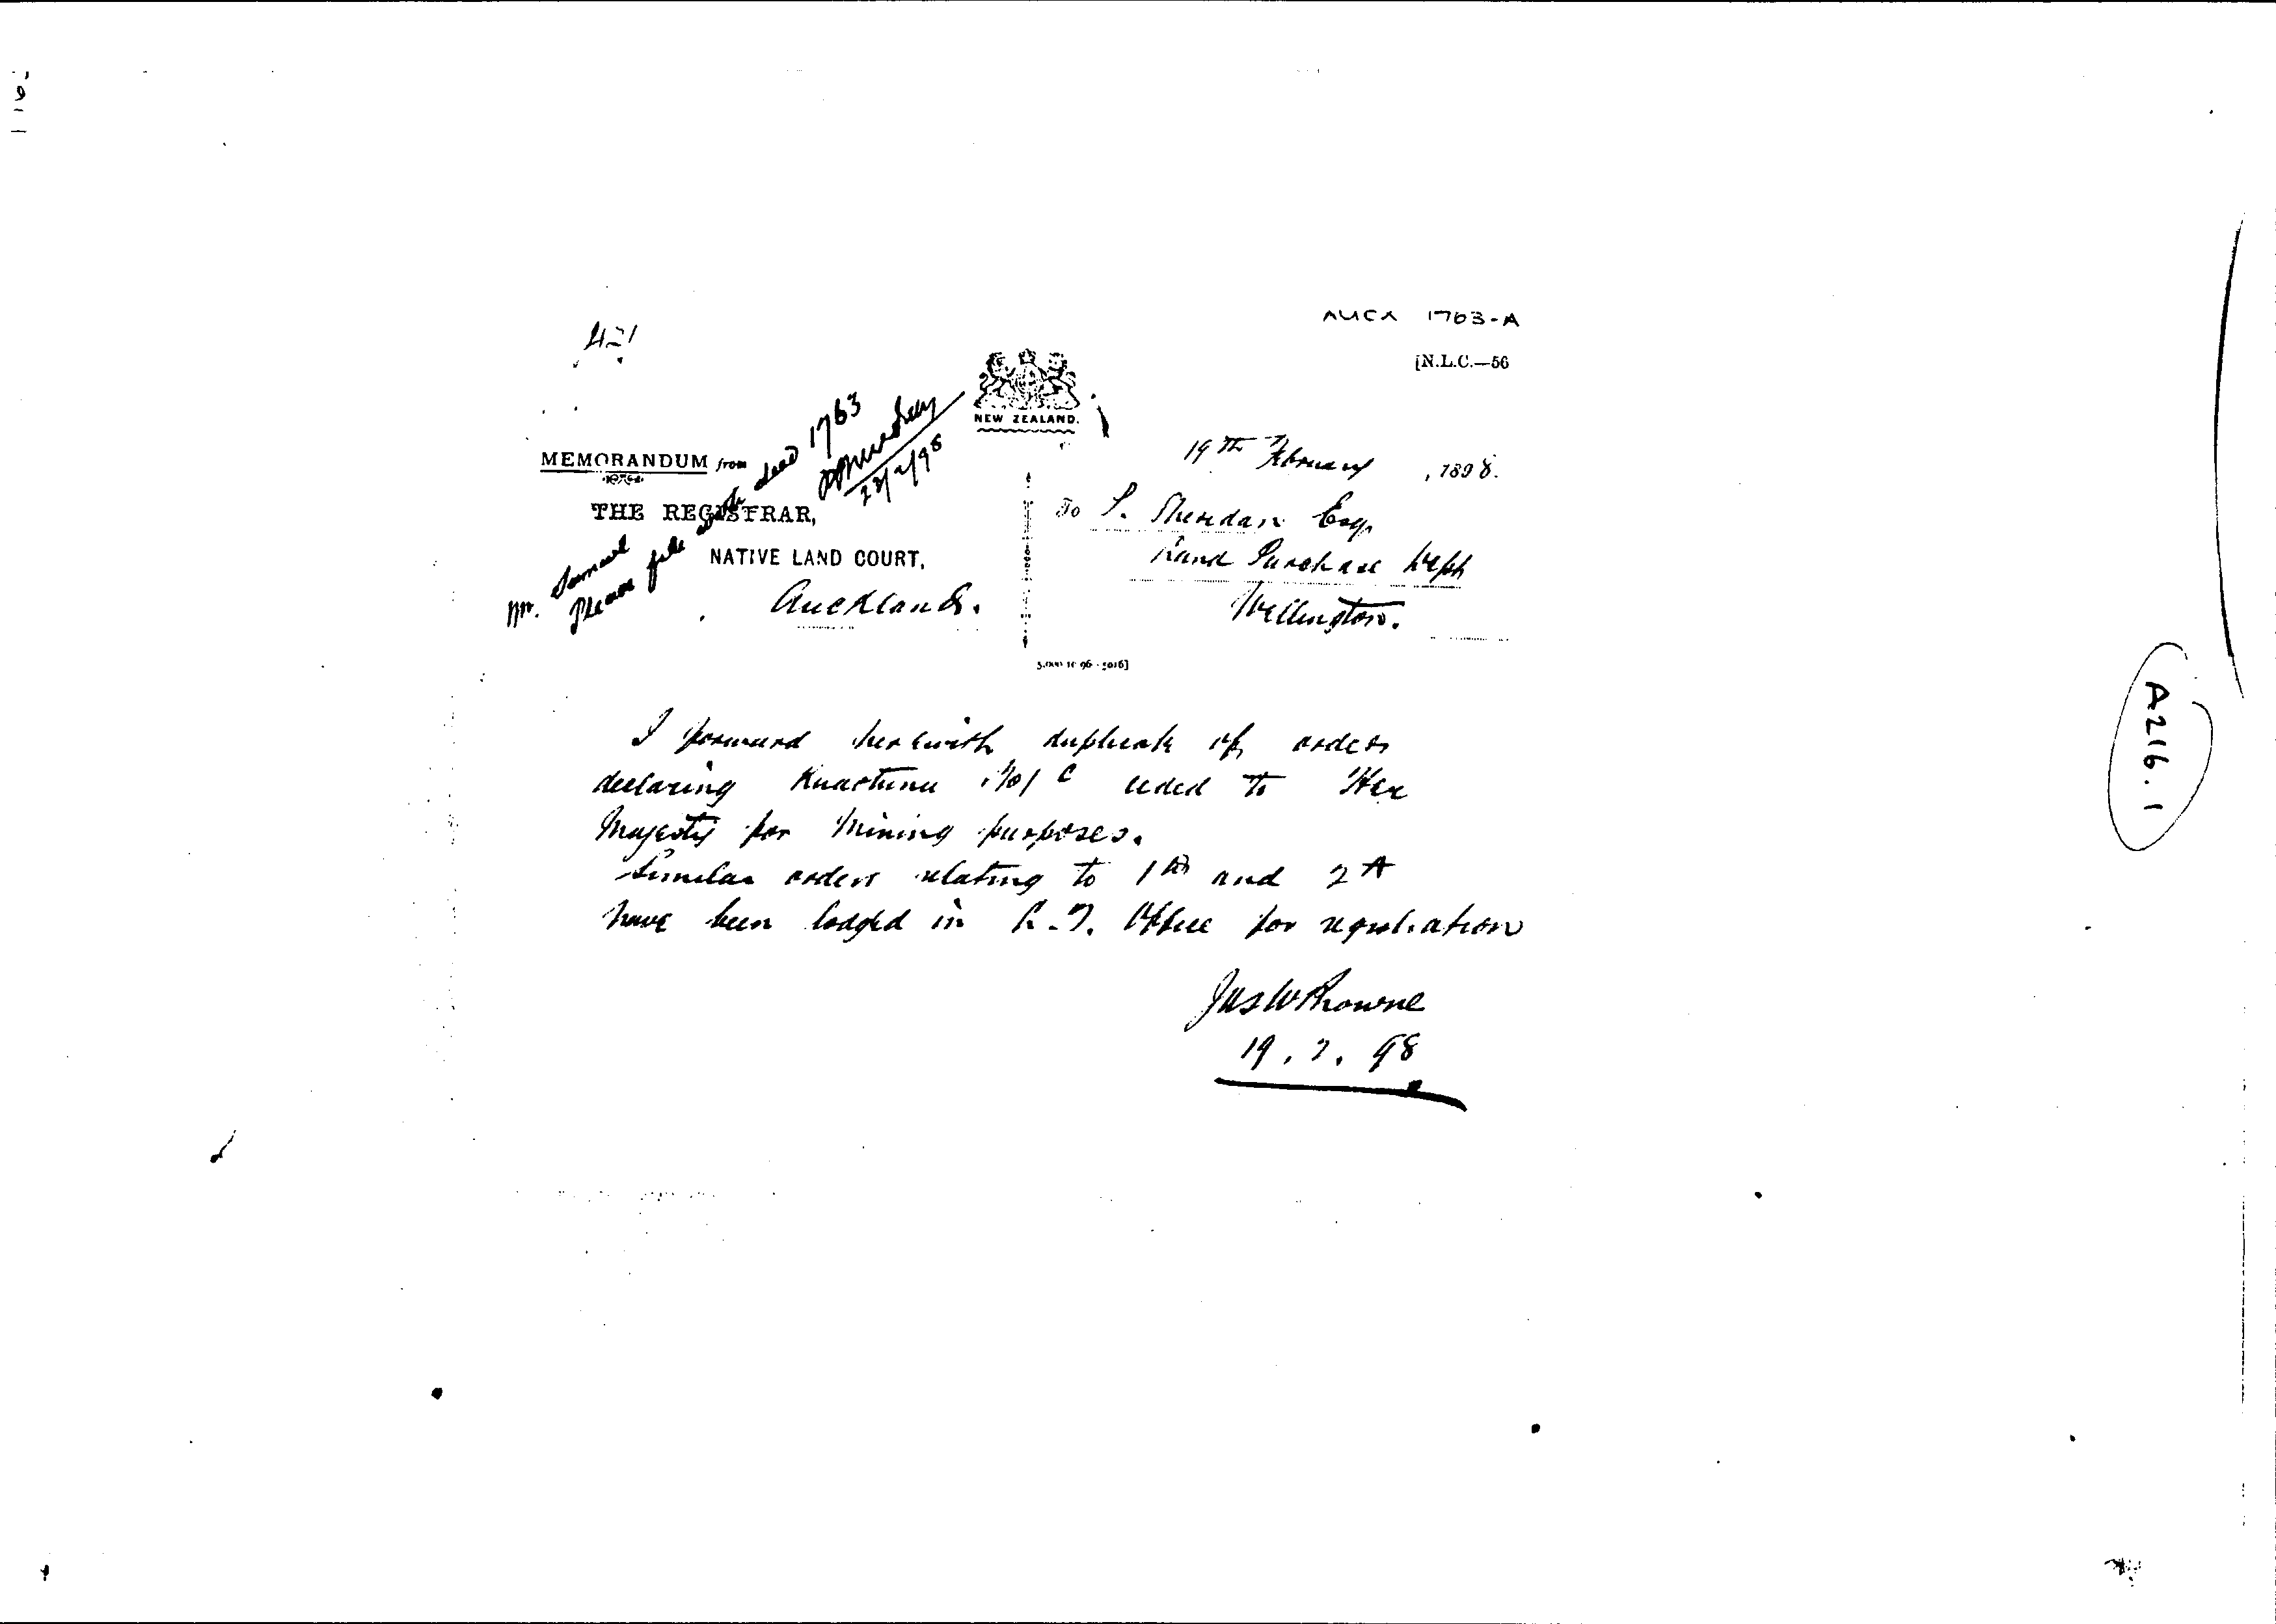 AUCK 1763-A
421
[N.L.C.—56
NEW ZEALAND.
MEMORANDUM from
THE REGISTRAR,
NATIVE LAND COURT,
Auckland.
19th February, 1898.
To P. Sheridan Esq.
Land Purchase Dept
Wellington.
Mr.
Please file with deed 1763
22/2/98
I forward herewith duplicate of orders
declaring Kuaotunu No 1 C ceded to Her
Majesty for Mining purposes.
Similar orders relating to 1 and 2 A
have been lodged in L.T. Office for registration
Jas W Browne
19.2.98
A216.1